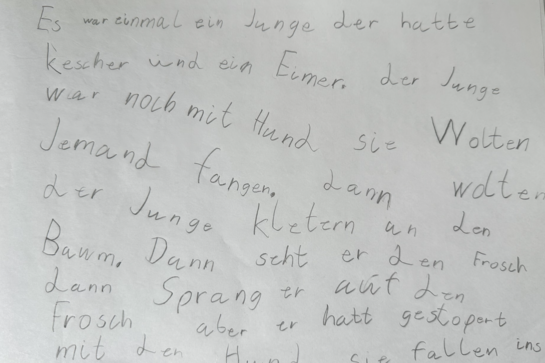 Es war einmal ein Junge der hatte
Kescher und ein Eimer. der Junge
war noch mit Hund sie Wolten
Jemand fangen. dann wolten
der Junge kletern an den
Bawm. Dann seht er den Frosch
dann Sprang er auf den
Frosch aber er hatt gestopert
mit den Hund sie fallen ins